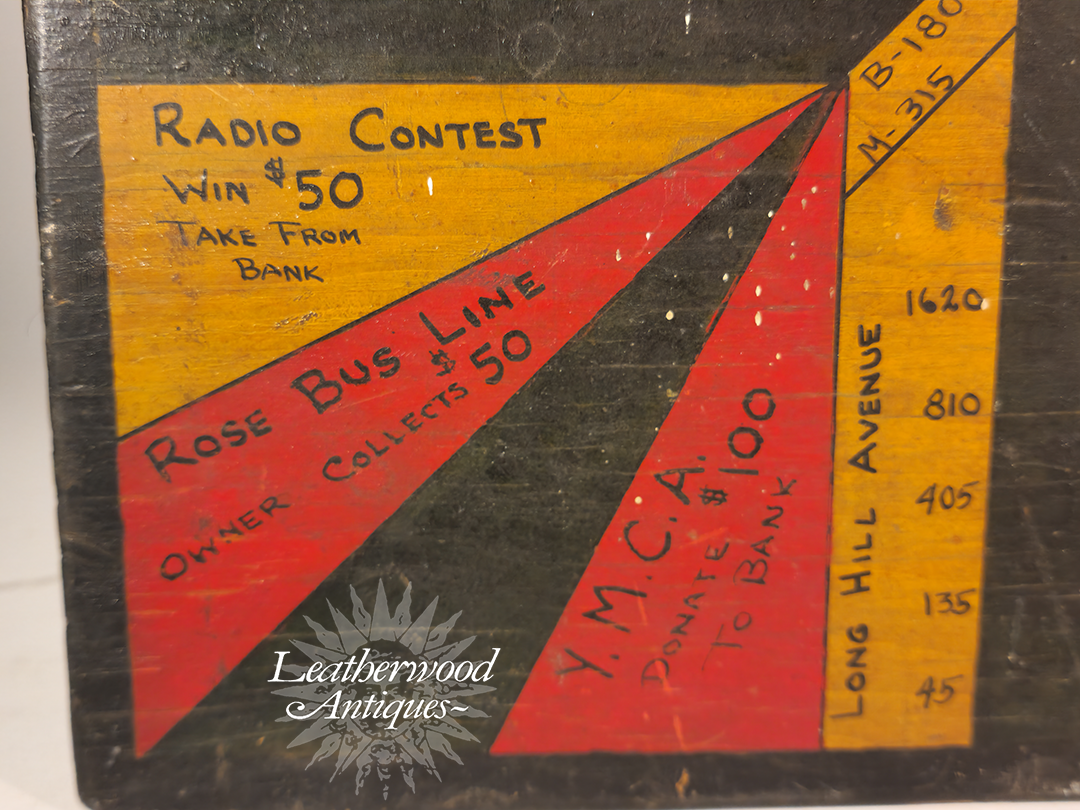 RADIO CONTEST
WIN $50
TAKE FROM
BANK
ROSE BUS LINE
OWNER COLLECTS $50
Y.M.C.A.
DONATE $100
TO BANK
B-180
M-315
LONG HILL AVENUE
1620
810
405
135
45
Leatherwood
Antiques~